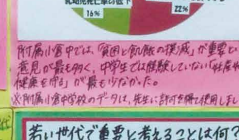 16%
22%
附属小倉中では、「貧困と飢餓の撲滅」が重要という
意見が最も多く、中学生では経験していない「妊産婦の
健康を守る」が最も少なかった。
※附属小倉中学校のデータは、先生に許可を得て使用しました
若い世代で重要と考えることは何で